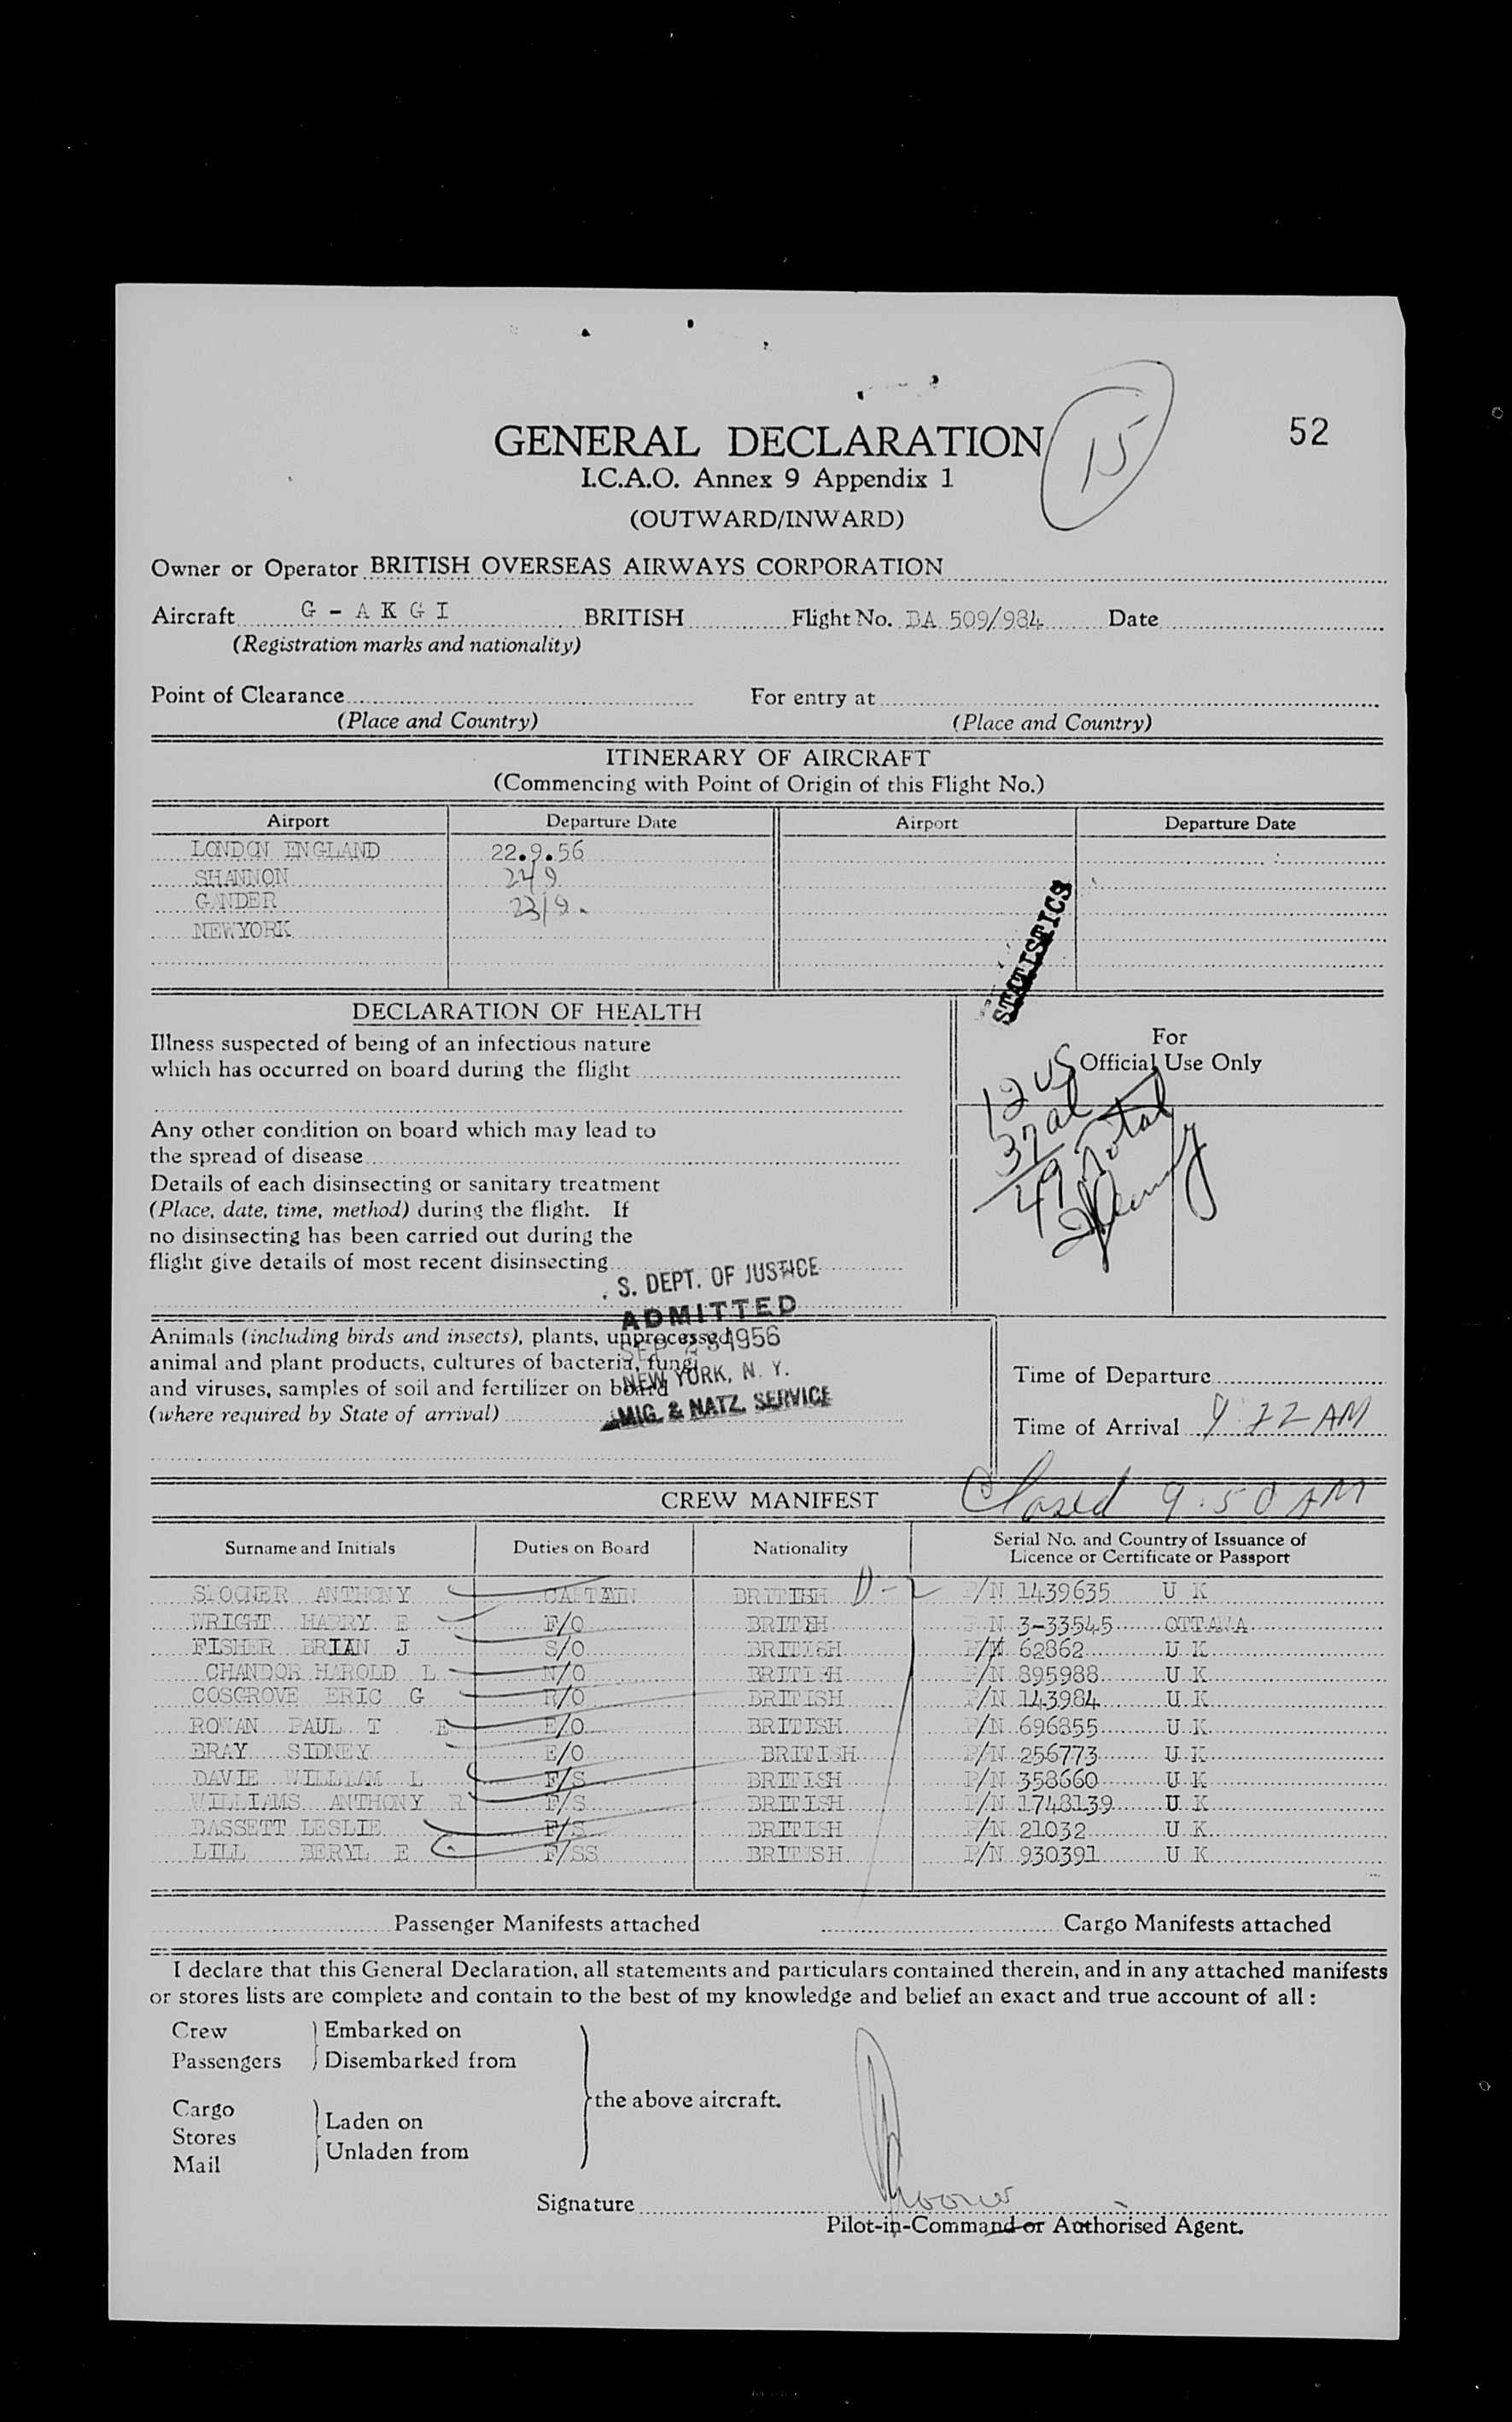 52
15
GENERAL DECLARATION
I.C.A.O. Annex 9 Appendix 1
(OUTWARD/INWARD)
Owner or Operator BRITISH OVERSEAS AIRWAYS CORPORATION
Aircraft G - A K G I BRITISH Flight No. BA 509/984 Date
(Registration marks and nationality)
Point of Clearance For entry at
(Place and Country) (Place and Country)
ITINERARY OF AIRCRAFT
(Commencing with Point of Origin of this Flight No.)
Airport Departure Date Airport Departure Date
LONDON ENGLAND 22.9.56
SHANNON
GANDER 23/9.
NEWYORK
STATISTICS
DECLARATION OF HEALTH
Illness suspected of being of an infectious nature
which has occurred on board during the flight
For
Official Use Only
12 US
37 al
49 Total
Any other condition on board which may lead to
the spread of disease
Details of each disinsecting or sanitary treatment
(Place, date, time, method) during the flight. If
no disinsecting has been carried out during the
flight give details of most recent disinsecting
S. DEPT. OF JUSTICE
ADMITTED
SEP 1956
NEW YORK, N. Y.
MIG. & NATZ. SERVICE
Animals (including birds and insects), plants, unprocessed
animal and plant products, cultures of bacteria, fungi
and viruses, samples of soil and fertilizer on board
(where required by State of arrival)
Time of Departure
Time of Arrival 9:22 AM
Closed 9:50 AM
CREW MANIFEST
Surname and Initials Duties on Board Nationality Serial No. and Country of Issuance of Licence or Certificate or Passport
ANTHONY CAPTAIN BRITISH D-2 P/N 1439635 U K
WRIGHT HARRY E F/O BRITIH P N 3-33545 OTTAWA
FISHER BRIAN J S/O BRITISH P/N 62862 U K
CHANDOR HAROLD L N/O BRITISH P/N 895988 U K
COSGROVE ERIC G R/O BRITISH P/N 143984 U K
ROWAN PAUL T E E/O BRITISH P/N 696855 U K
BRAY SIDNEY E/O BRITISH P/N 256773 U K
DAVIE WILLIAM L F/S BRITISH P/N 358660 U K
WILLIAMS ANTHONY R F/S BRITISH P/N 1748139 U K
BASSETT LESLIE F/S BRITISH P/N 21032 U K
LILL BERYL E F/SS BRITISH P/N 930391 U K
Passenger Manifests attached Cargo Manifests attached
I declare that this General Declaration, all statements and particulars contained therein, and in any attached manifests
or stores lists are complete and contain to the best of my knowledge and belief an exact and true account of all :
Crew Embarked on
Passengers Disembarked from
the above aircraft.
Cargo
Stores Laden on
Mail Unladen from
Signature
Pilot-in-Command or Authorised Agent.